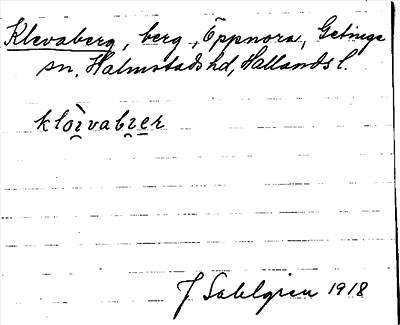 Klevaberg, berg, Öppnora, Getinge
sn, Halmstads hd, Hallands l.
kloì̯vabɿer
J Sahlgren 1918